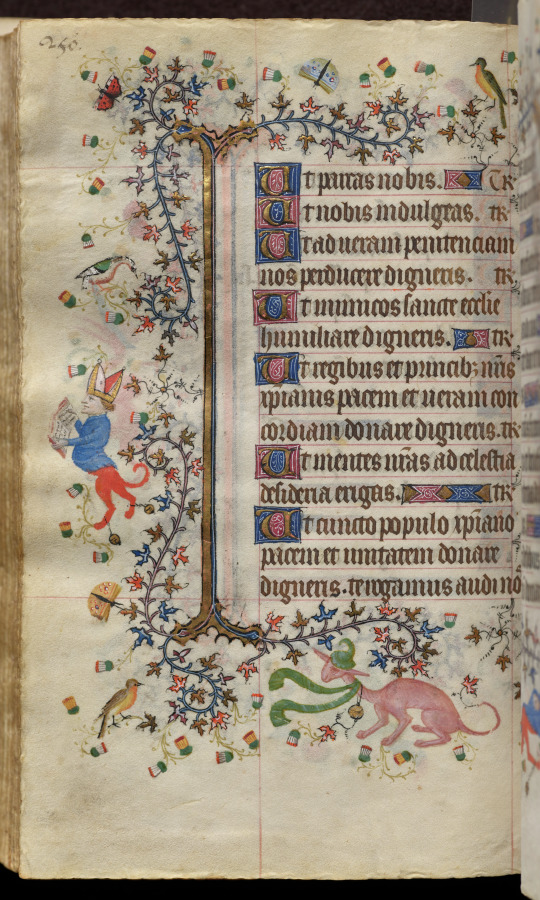 250.
Ut parcas nobis. TR
Ut nobis indulgeas. tr
Ut ad ueram penitenciam
nos perducere digneris. tr
Ut inimicos sancte ecclie
humiliare digneris. tr
Ut regibus et principib; nr̄is
xp̄ianis pacem et ueram con
cordiam donare digneris. tr
Ut mentes nr̄as ad celestia
desideria erigas. tr
Ut cuncto populo xp̄iano
pacem et unitatem donare
digneris. te rogamus audi no